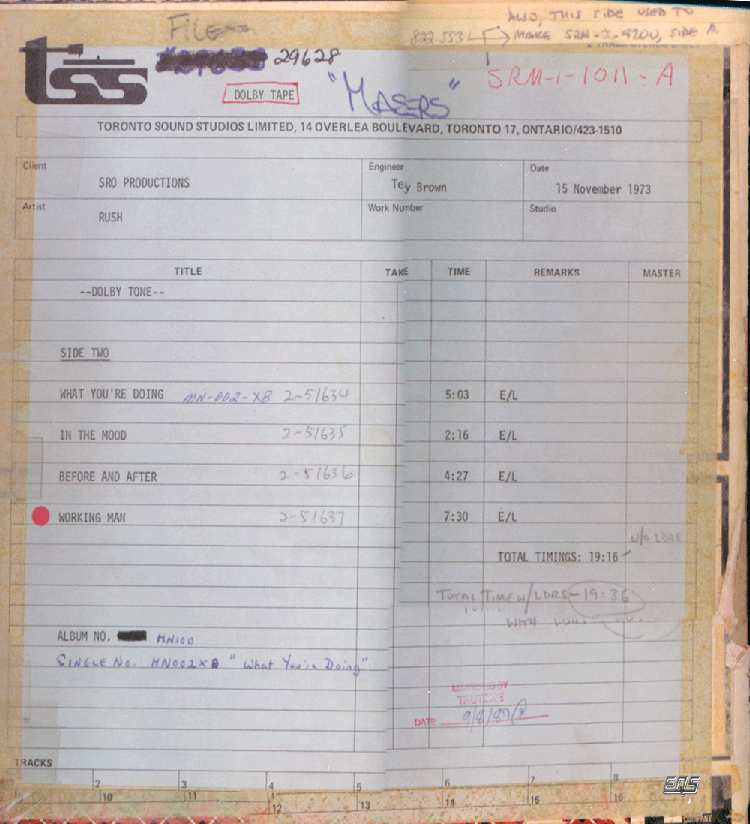 FILE
ALSO, THIS SIDE USED TO
MAKE SRM-2-9200, SIDE A
tss
29628
DOLBY TAPE
"MASERS"
SRM-1-1011-A
TORONTO SOUND STUDIOS LIMITED, 14 OVERLEA BOULEVARD, TORONTO 17, ONTARIO/423-1510
Client
SRO PRODUCTIONS
Engineer
Brown
Date
15 November 1973
Artist
RUSH
Work Number
Studio
TITLE TAKE TIME REMARKS MASTER
--DOLBY TONE--
SIDE TWO
WHAT YOU'RE DOING MN-002-XB 2-51634 5:03 E/L
IN THE MOOD 2-51635 2:16 E/L
BEFORE AND AFTER 2-51636 4:27 E/L
WORKING MAN 2-51637 7:30 E/L
W/O LDRS
TOTAL TIMINGS: 19:16
TOTAL TIME W/LDRS-19:36
WITH
ALBUM NO. MN100
SINGLE NO. MN002XB "What You're Doing"
BY
DATE 9/8/87
TRACKS
2 3 4 5 6 7 8
10 11 12 13 14 15 16